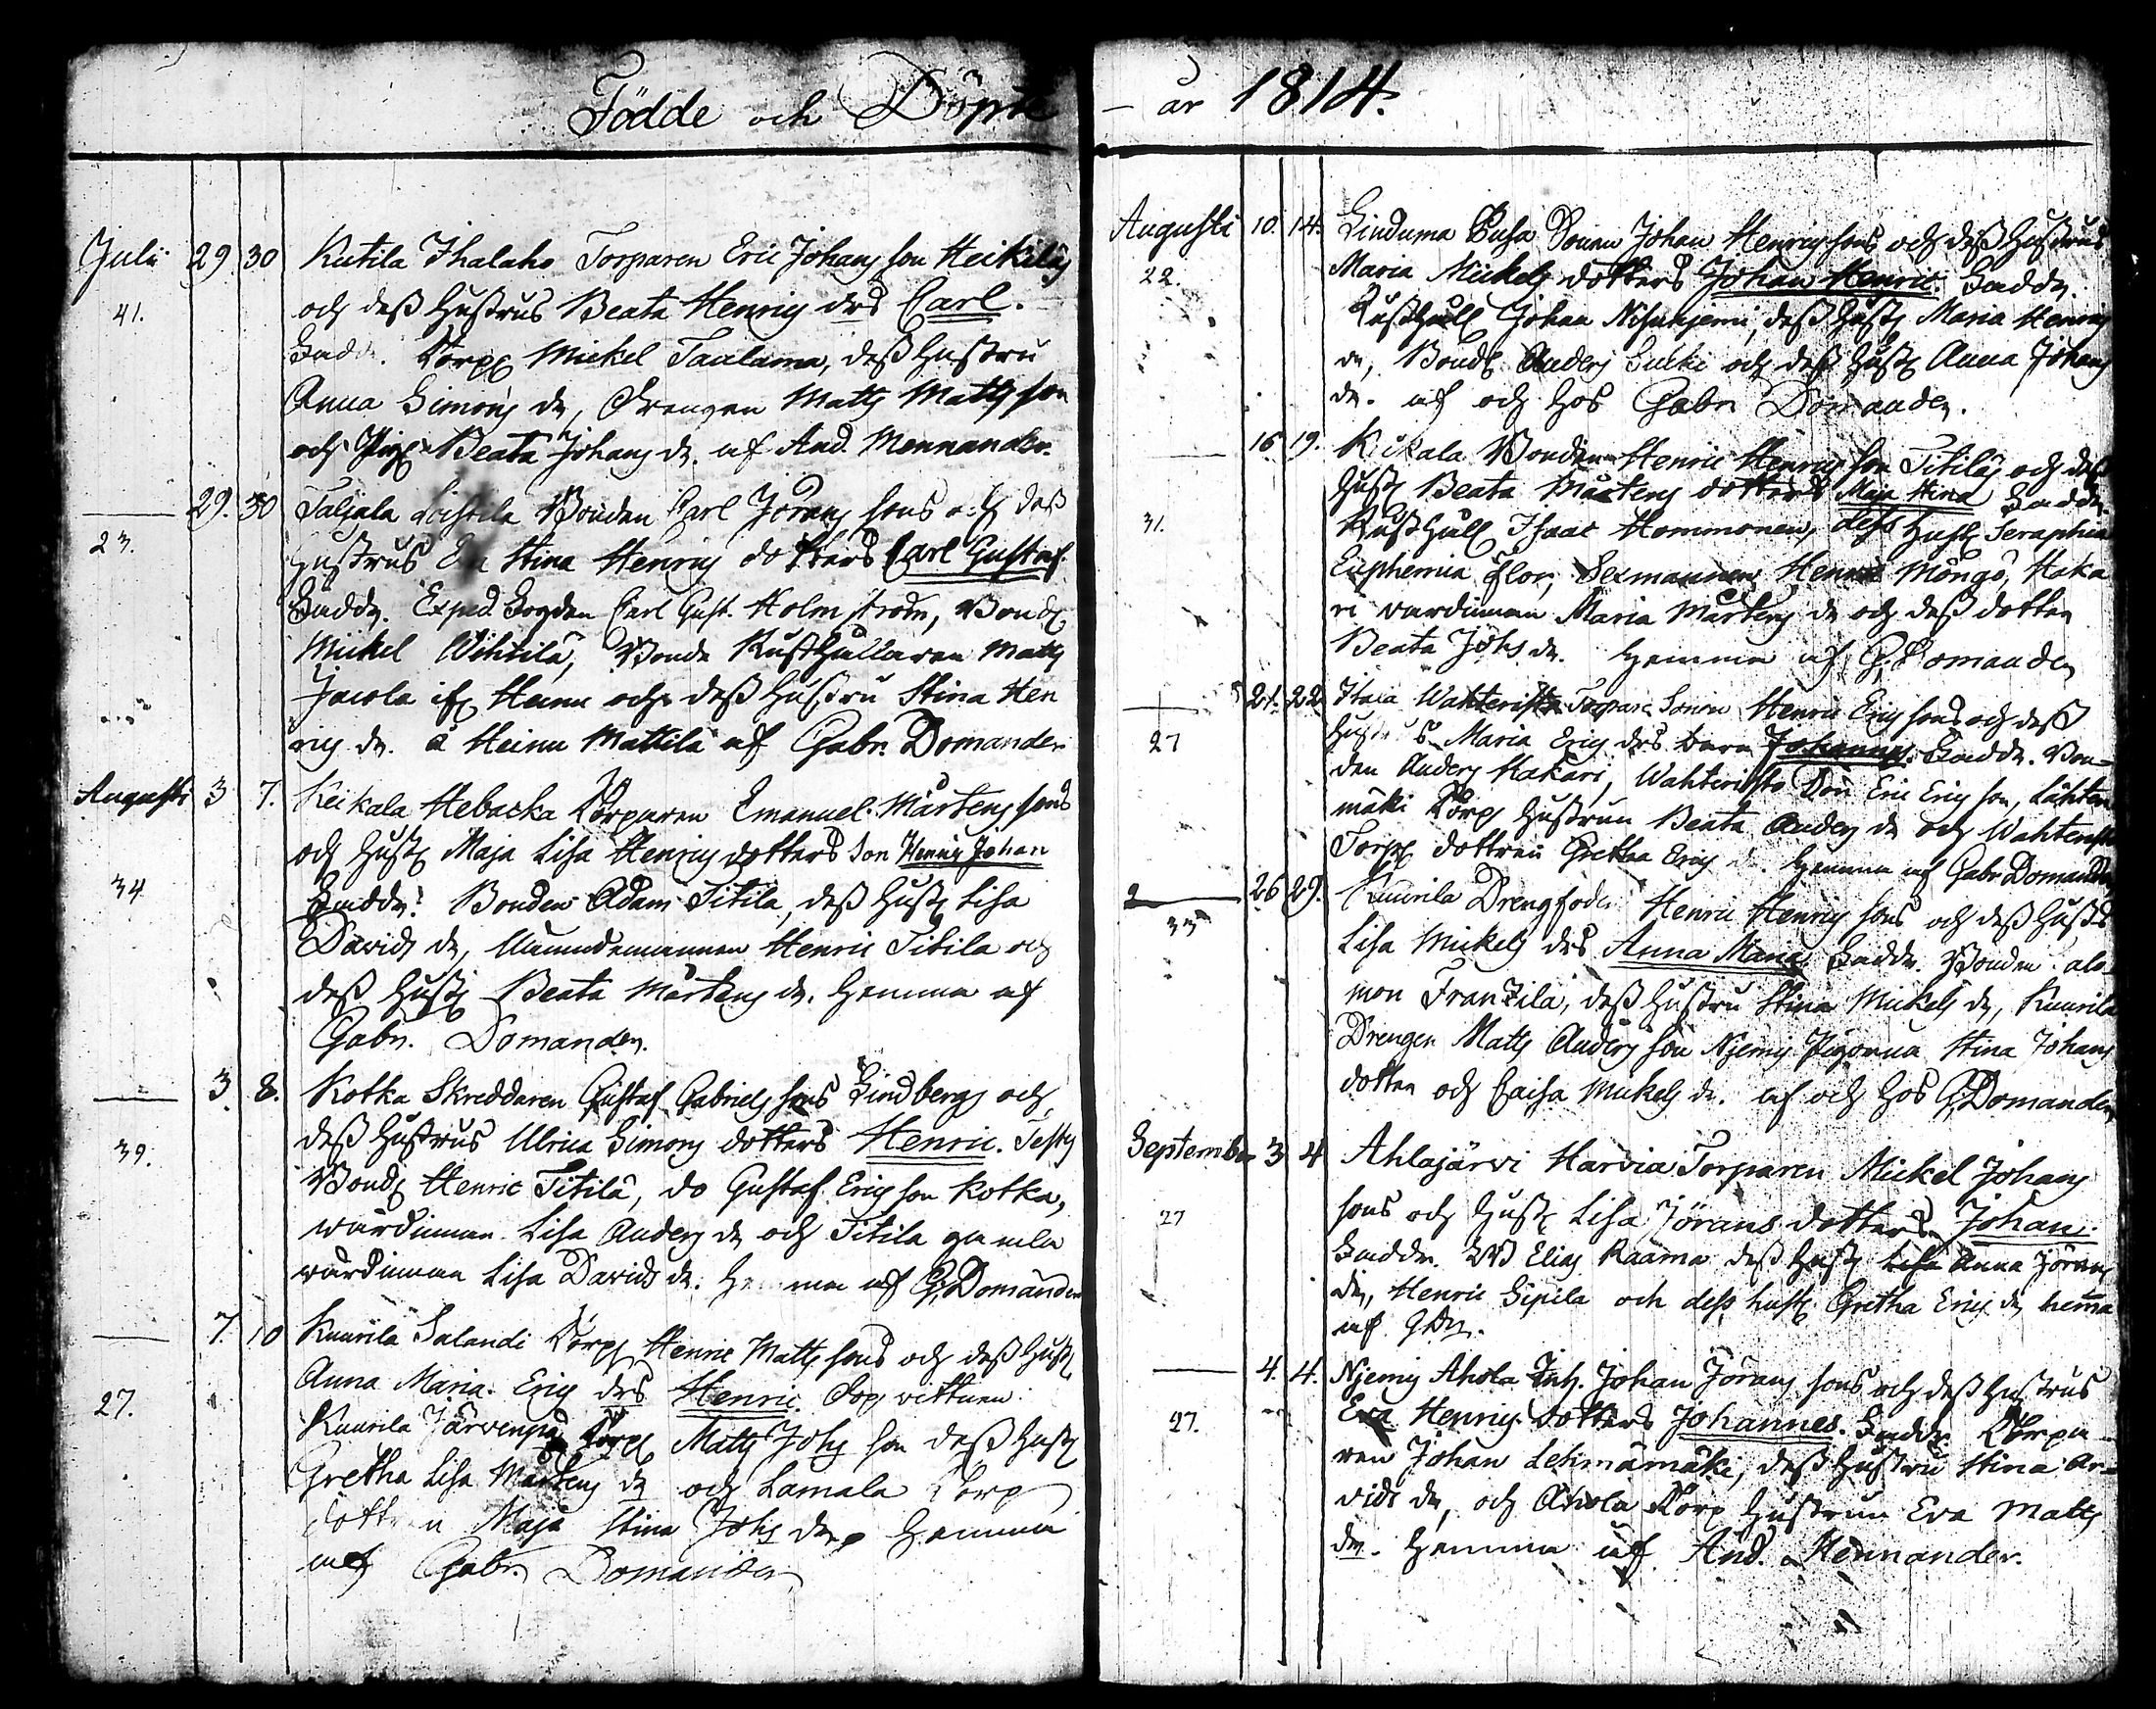 Födde och Döpte
Julii 29 30 Kutila Ihalaho Torparen Eric Johansson Heikiläs
och dess Hustrus Beata Henrics drs Carl.
41.
Fadd. Torp. Mickel Taulama, dess Hustru
Anna Simons dr, Drengen Matts Matts son
och Pig. Beata Johans dr. af And. Mennander.
29. 30 Taljala Bonden Carl Jörans sons och dess
23.
Hustrus Eva Stina Henrics dotters Carl Gustaf.
Faddr. Exped. Fogden Carl Gust. Holmström, Bond.
Mickel Wihtilä, Bonde Rusthållaren Matts
Jacola if. Heinu och dess Hustru Stina Hen
rics dr. à Heinu Mattila af Gabr. Domander
Augusti 3 7. Keikala Hebacka Torparen Emanuel Mårtens sons
och Hust. Maja Lisa Henrics dotters Son Henric Johan
34.
Faddr. Bonden Adam Titila, dess Hust. Lisa
Davids dr, Nämndemannen Henric Titila och
dess Hust. Beata Mårtens dr. Hemma af
Gabr. Domander.
3. 8. Kotka Skreddaren Gustaf Gabriels sons Lindbergs och
39.
dess Hustrus Ulrica Simons dotters Henric. Test.
Bond. Henric Titilä, do Gustaf Erics son Kotka,
wärdinnan Lisa Anders dr och Titila gamla
wärdinnan Lisa Davids dr. Hemma af G. Domander
7. 10 Kuurila Salandi Torp. Henric Matts sons och dess Hust.
Anna Maria Erics drs Henric. Dop vittnen
27.
Kuurila Järvenpä Torp. Matts Johs son dess Hust.
Gretha Lisa Mårtens dr och Lamala Torp
dottren Maja Stina Johs dr. Hemma
af Gabr. Domander
– år 1814.
Augusti 10. 14. Linduma Pusa Sonen Johan Henrics sons och dess Hustrus
22.
Maria Mickels dotters Johan Henric. Faddr.
Rusthåll. Johan Nisukjerni, dess Hust. Maria Henrics
dr, Bond. Anders Sucki och dess Hust. Anna Johans
dr. af och hos Gabr. Domander.
16 19. Keikala Bonden Henric Henrics son Titiläs och dess
Hust. Beata Mårtens dotters Maja Stina Faddr.
31.
Rusthåll. Isaac Hommonen, dess Hust. Seraphia
Euphemia Flor, Sexmannen Henric Möngö, Haka
ri värdinnan Maria Mårtens dr och dess dotter
Beata Johs dr. Hemma af G. Domander
21. 22 Ittaia Wahteristo Torpare Sonen Henric Erics sons och dess
27
Hustrus Maria Erics drs barn Johannes. Faddr. Bon-
den Anders Hakari, Wahteristo Son Eric Erics son, Lähten
mäki Torp. Hustrun Beata Anders dr och Wahteristo
Torp. dottren Gretha Erics dr. Hemma af Gabr. Domander
26 29. Kuurila Drengfoder Henric Henrics sons och dess Hustr.
33
Lisa Mickels drs Anna Maria. Faddr. Bonden Salo-
mon Franzila, dess Hustru Stina Mickels dr, Kuurila
Drengen Matts Anders son Njemis Pigorna Stina Johans
dotter och Caisa Mickels dr. af och hos G. Domander
September 3 4 Ahlajärvi Harvia Torparen Mickel Johans
27
sons och Hust. Lisa Jörans dotters Johan.
Faddr. Elias Raama dess Hust. Lisa Anna Jörans
dr, Henric Sipila och dess hust. Gretha Erics dr, hemma
af GDr.
4. 4. Njemis Ahola Inh. Johan Jörans sons och dess Hustrus
27.
Eva Henrics dotters Johannes. Faddr. Torpa
ren Johan Lehmämäki, dess Hustru Stina Ar-
vids dr, och Ahola Torp Hustrun Eva Matts
dr. Hemma af And. Mennander.